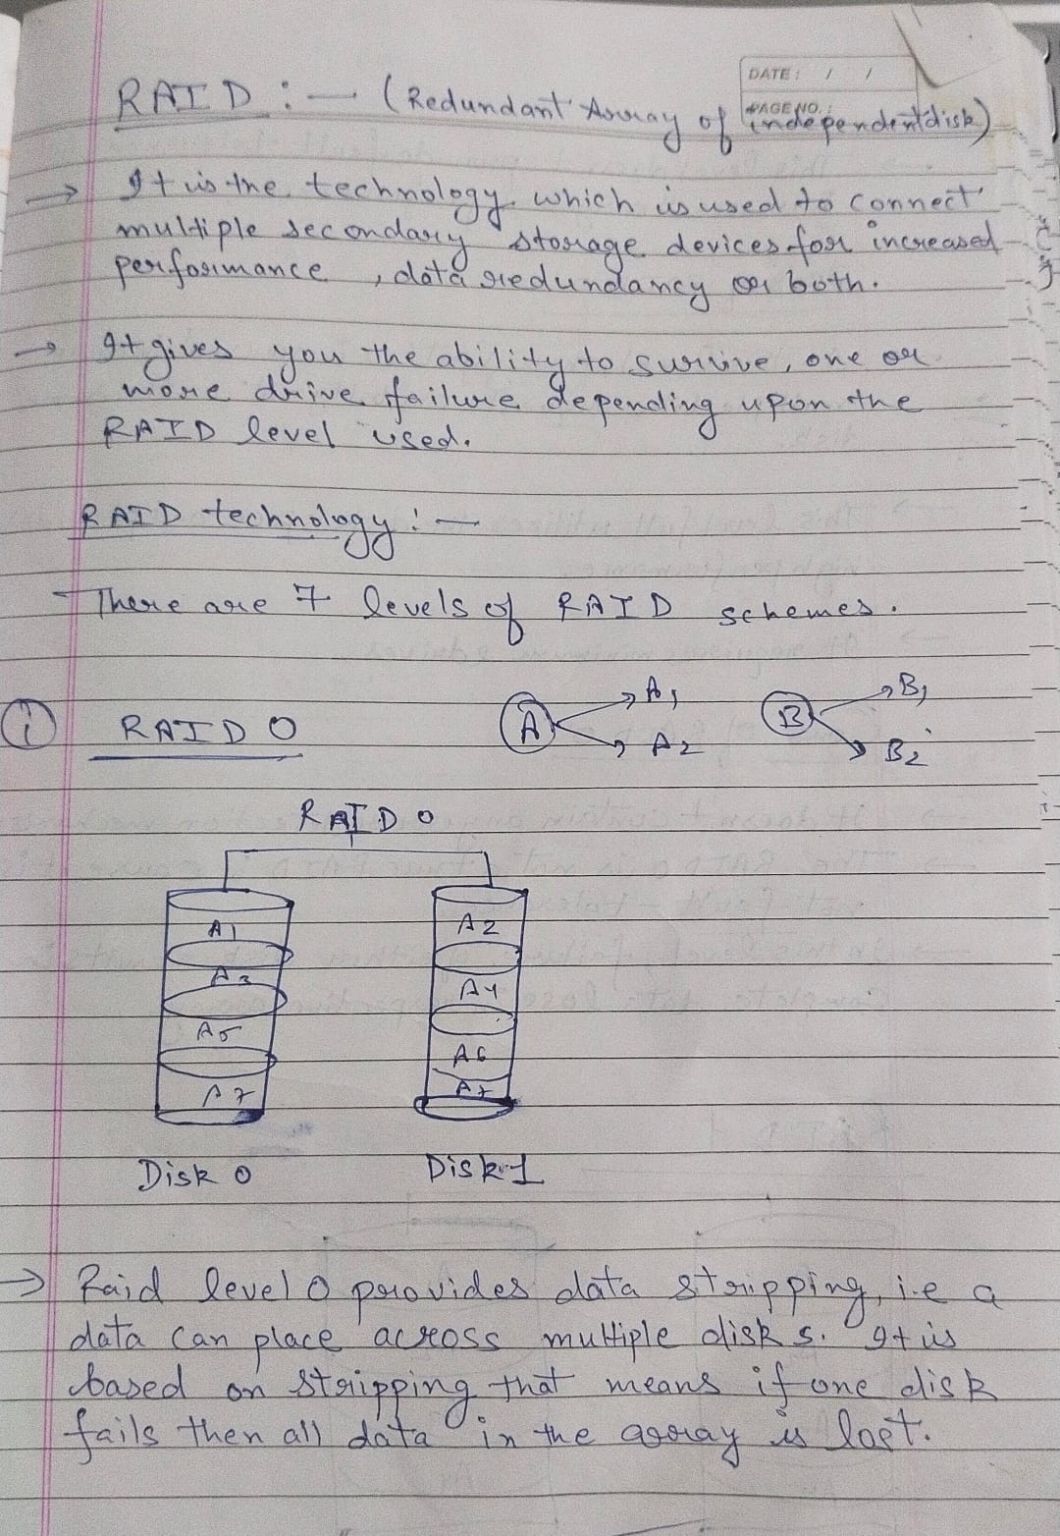 DATE: / /
PAGE NO.:
RAID :— (Redundant Array of independent disk)
→ It is the technology which is used to connect
multiple secondary storage devices for increased
performance , data redundancy or both.
→ It gives you the ability to survive, one or
more drive failure depending upon the
RAID level used.
RAID technology :—
- There are 7 levels of RAID schemes.
i RAID 0 A → A1 B → B1
A2 B2
RAID 0
A1 A2
A3 A4
A5 A6
A7 A7
Disk 0 Disk-1
→ Raid level 0 provides data stripping, i.e a
data can place across multiple disks. It is
based on stripping that means if one disk
fails then all data in the array is lost.